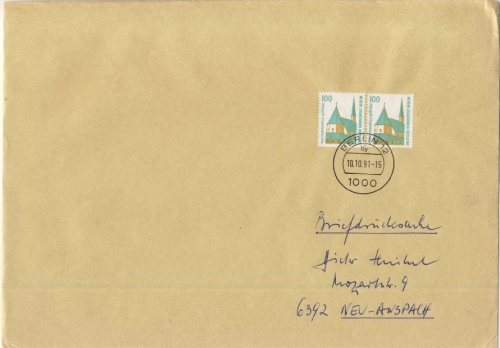 100 100
DEUTSCHE BUNDESPOST BERLIN
BERLIN 12
by
10.10.91-15
1000
Briefdrucksache
Mozartstr. 9
6392 NEU-ANSPACH